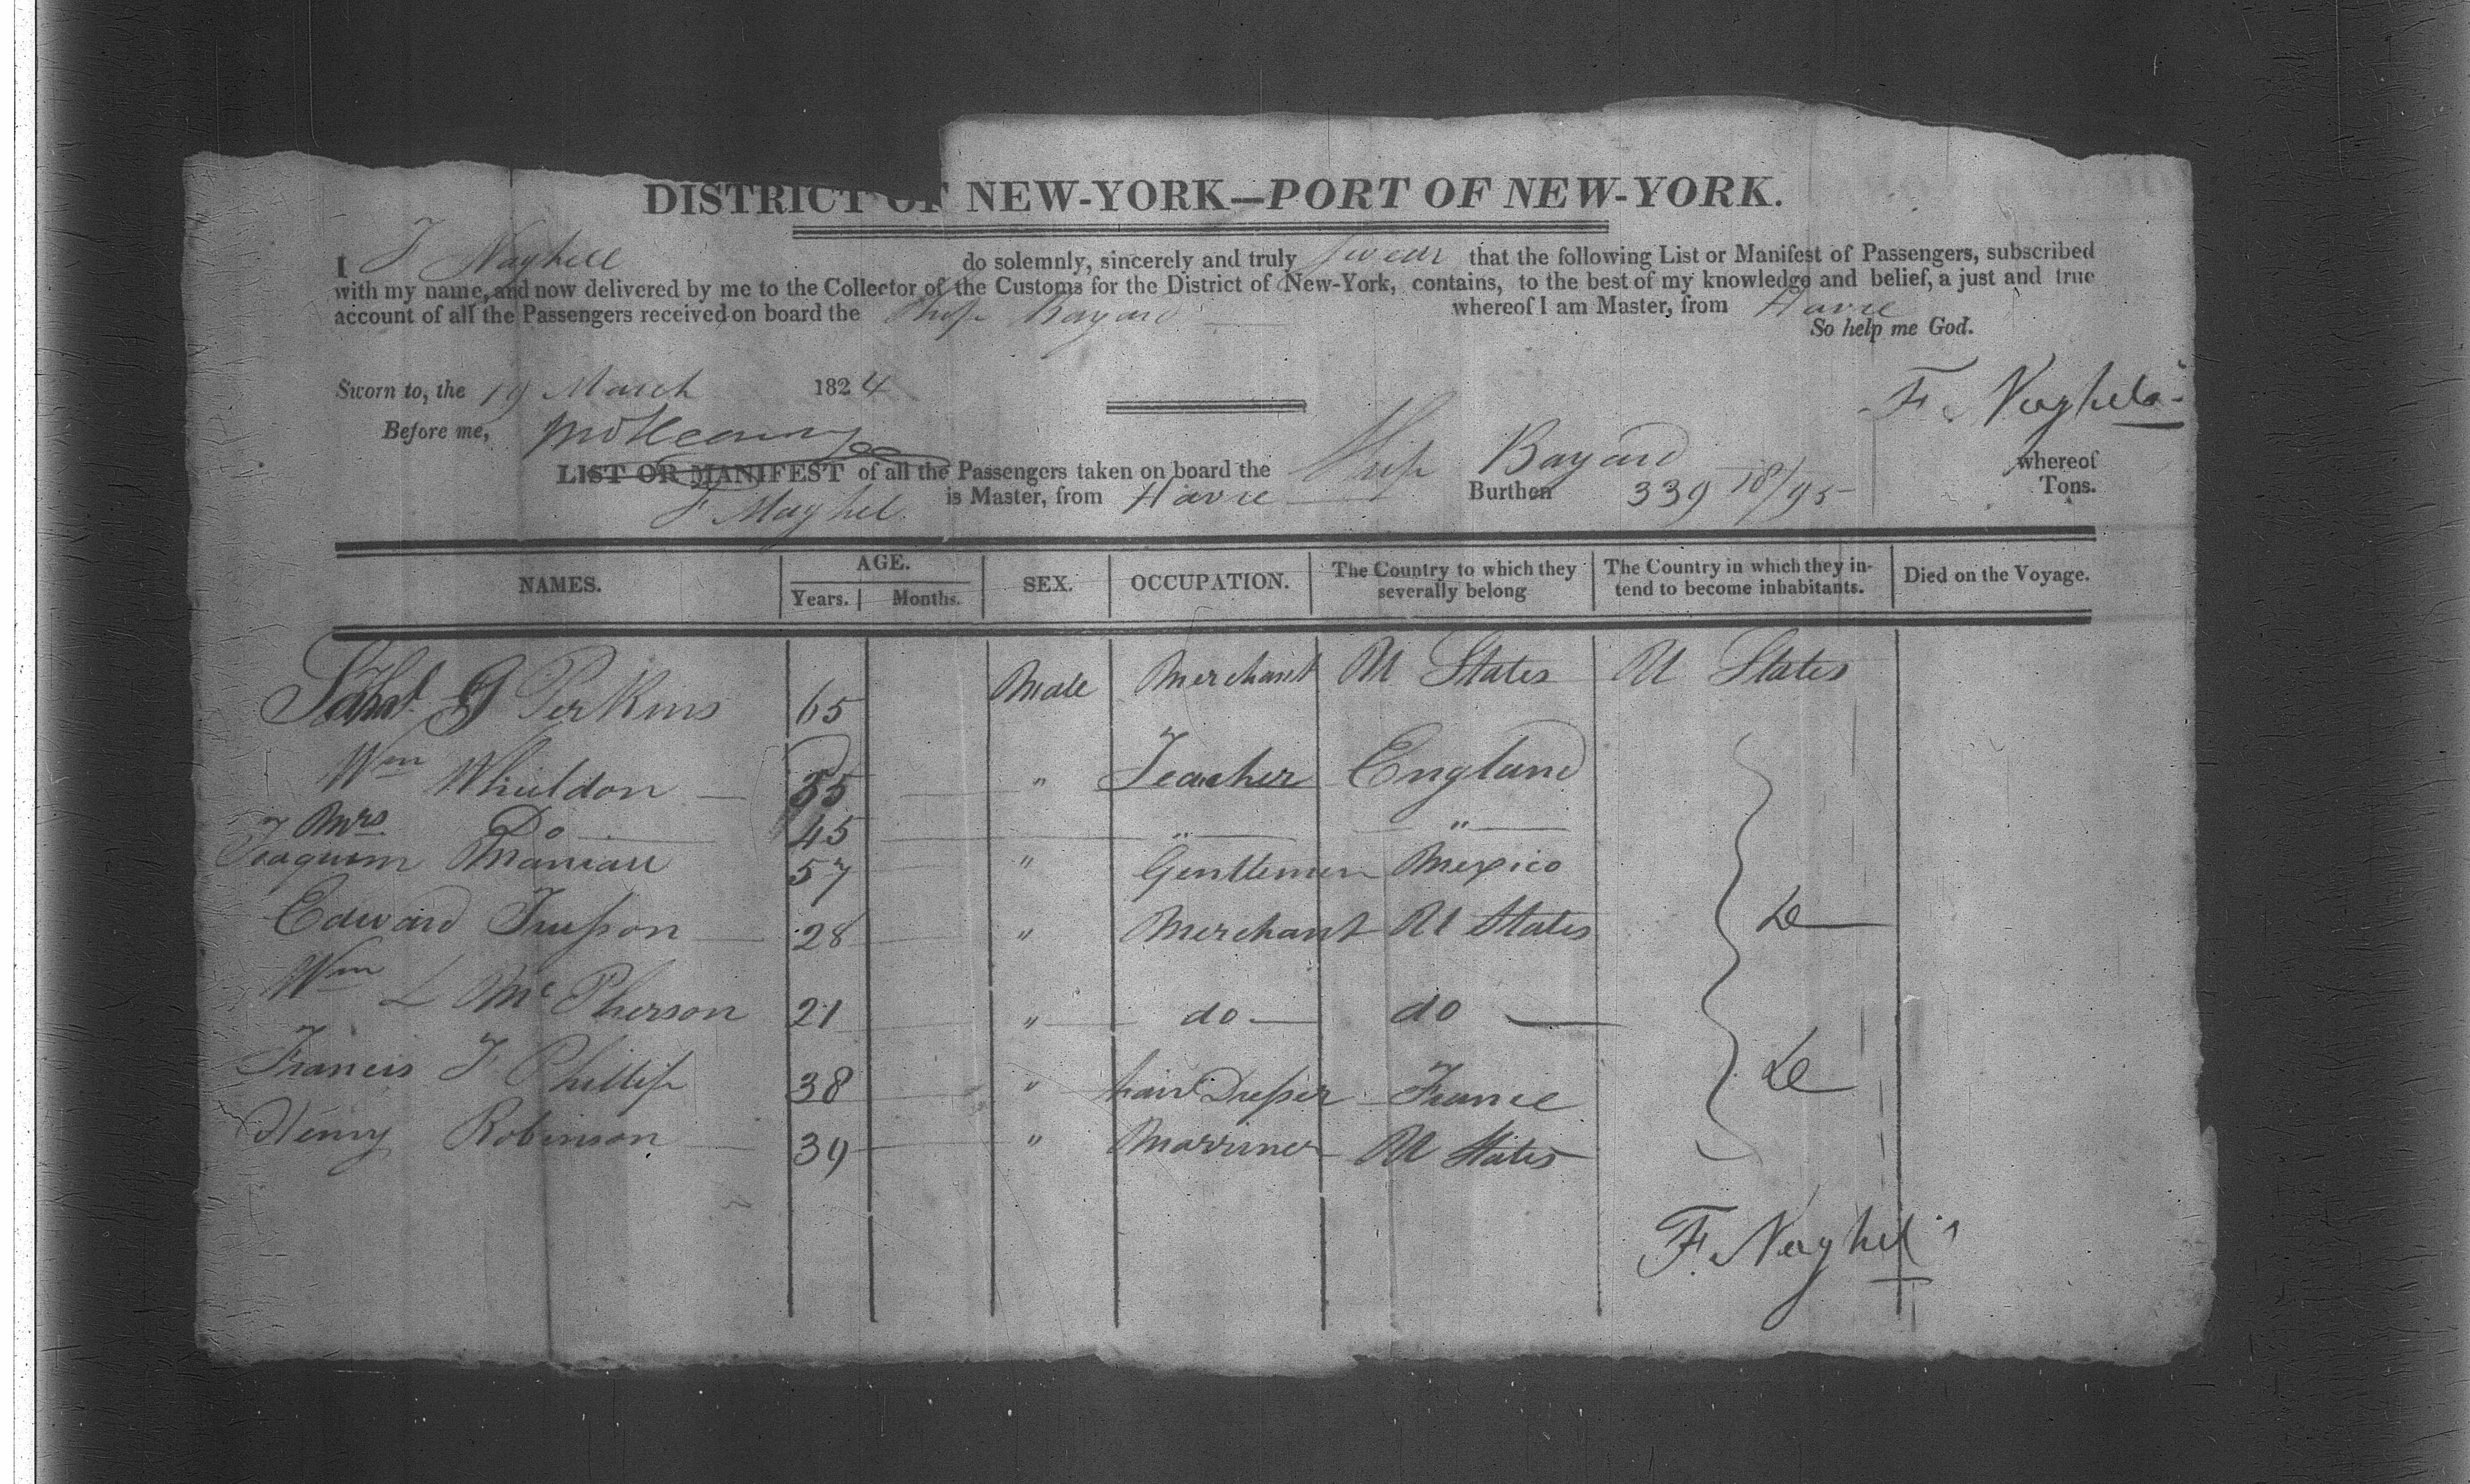 DISTRICT OF NEW-YORK—PORT OF NEW-YORK.
I F Naghell do solemnly, sincerely and truly swear that the following List or Manifest of Passengers, subscribed
with my name, and now delivered by me to the Collector of the Customs for the District of New-York, contains, to the best of my knowledge and belief, a just and true
account of all the Passengers received on board the Ship Bayard whereof I am Master, from Havre
So help me God.
Sworn to, the 19 March 1824
F. Naghel
Before me,
LIST OR MANIFEST of all the Passengers taken on board the Ship Bayard whereof
F Naghel is Master, from Havre Burthen 339 18/95 Tons.
NAMES. AGE. SEX. OCCUPATION. The Country to which they severally belong The Country in which they intend to become inhabitants. Died on the Voyage.
Years. Months.
G Perkins 65 Male Merchant U States U States
Wm Whieldon 55 " Teacher England
Mrs Do 45 " "
Joaquim Maniau 57 " Gentlemen Mexico
Edward Trusson 28 " Merchant U States Do
Wm L McPherson 21 " do do
Francis F Phillips 38 " hair Dresser France Do
Henry Robinson 39 " Marriner U States
F. Naghel